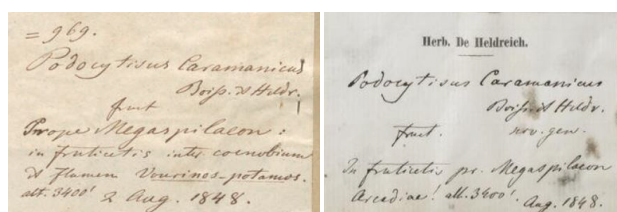 = 969.
Podocytisus Caramanicus
Boiss. & Heldr.
fruct
Prope Megaspilaeon:
in fruticetis inter coenobium
& flumen Vourinos-potamos.
alt. 3400' 2 Aug. 1848.
Herb. De Heldreich.
Podocytisus Caramanicus
Boiss. & Heldr.
fruct. nov. gen.
In fruticetis pr. Megaspilaeon
Arcadiae! alt. 3400'. Aug. 1848.